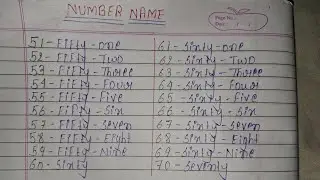 NUMBER NAME
Page No.
Date
51 - Fifty - one
52 - Fifty - Two
53 - Fifty - Three
54 - Fifty - Four
55 - Fifty - Five
56 - Fifty - Six
57 - Fifty - Seven
58 - Fifty - Eight
59 - Fifty - Nine
60 - Sixty
61 - Sixty - one
62 - Sixty - Two
63 - Sixty - Three
64 - Sixty - Four
65 - Sixty - Five
66 - Sixty - Six
67 - Sixty - Seven
68 - Sixty - Eight
69 - Sixty - Nine
70 - Seventy